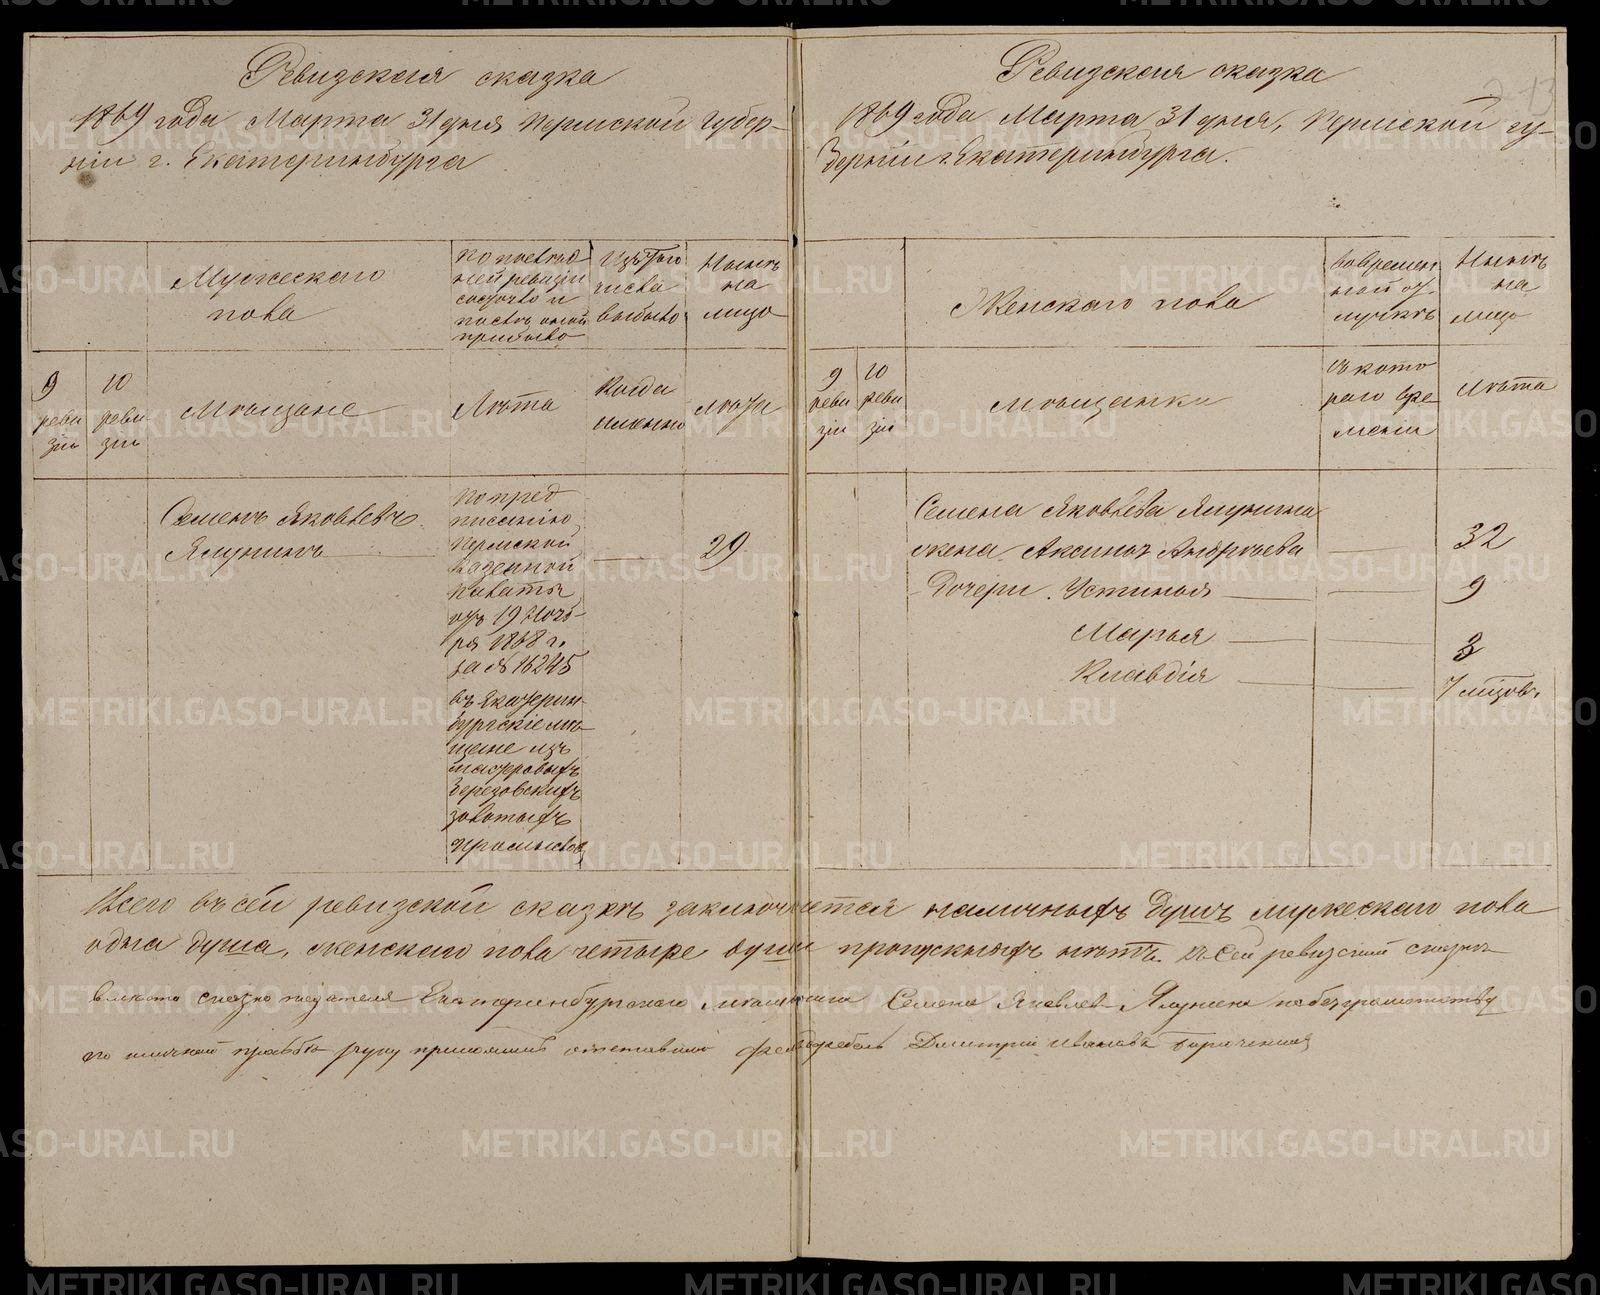 Ревизская сказка
1869 года Марта 31 дня Пермской Губер-
ніи г. Екатеринбурга
Мужескаго
пола
По послѣд
ней ревизіи
состояло и
послѣ оной
прибыло
Изъ того
числа
выбыло
Нынѣ
на
лицо
9
реви
зіи
10
реви-
зіи
Мѣщане
Лѣта
Когда
именно
Лѣта
Семенъ Яковлевъ
Ялунинъ
29
По пред
писанію
Пермской
Казенной
Палаты
отъ 19 Нояб-
ря 1868 г.
за № 16245
въ Екатерин-
бургскіе мѣ-
щане изъ
мастеровыхъ
Березовскихъ
золотыхъ
промысловъ
Ревизская сказка
1869 года Марта 31 дня, Пермской гу-
берніи г. Екатеринбурга.
213
Женскаго пола
Во времен
ной от-
лучкѣ
Нынѣ
на
лицо
9
реви
зіи
10
реви
зіи
мѣщанки
съ кото
раго вре
мени
Лѣта
Семена Яковлева Ялунина
жена Аксинья Андреева 32
Дочери. Устинья 9
Марья 3
Клавдія 7 мѣсяцовъ
Всего въ сей ревизской сказкѣ заключается наличныхъ душъ мужескаго пола
одна душа, женскаго пола четыре души пропускныхъ нѣтъ. Къ сей ревизской сказкѣ
вмѣсто сказко подателя Екатеринбургскаго мѣщанина Семена Яковлева Ялунина по безграмотству
по личной прозбѣ руку приложилъ отставной фельдфебель Димитрій Ивановъ
METRIKI.GASO-URAL.RU